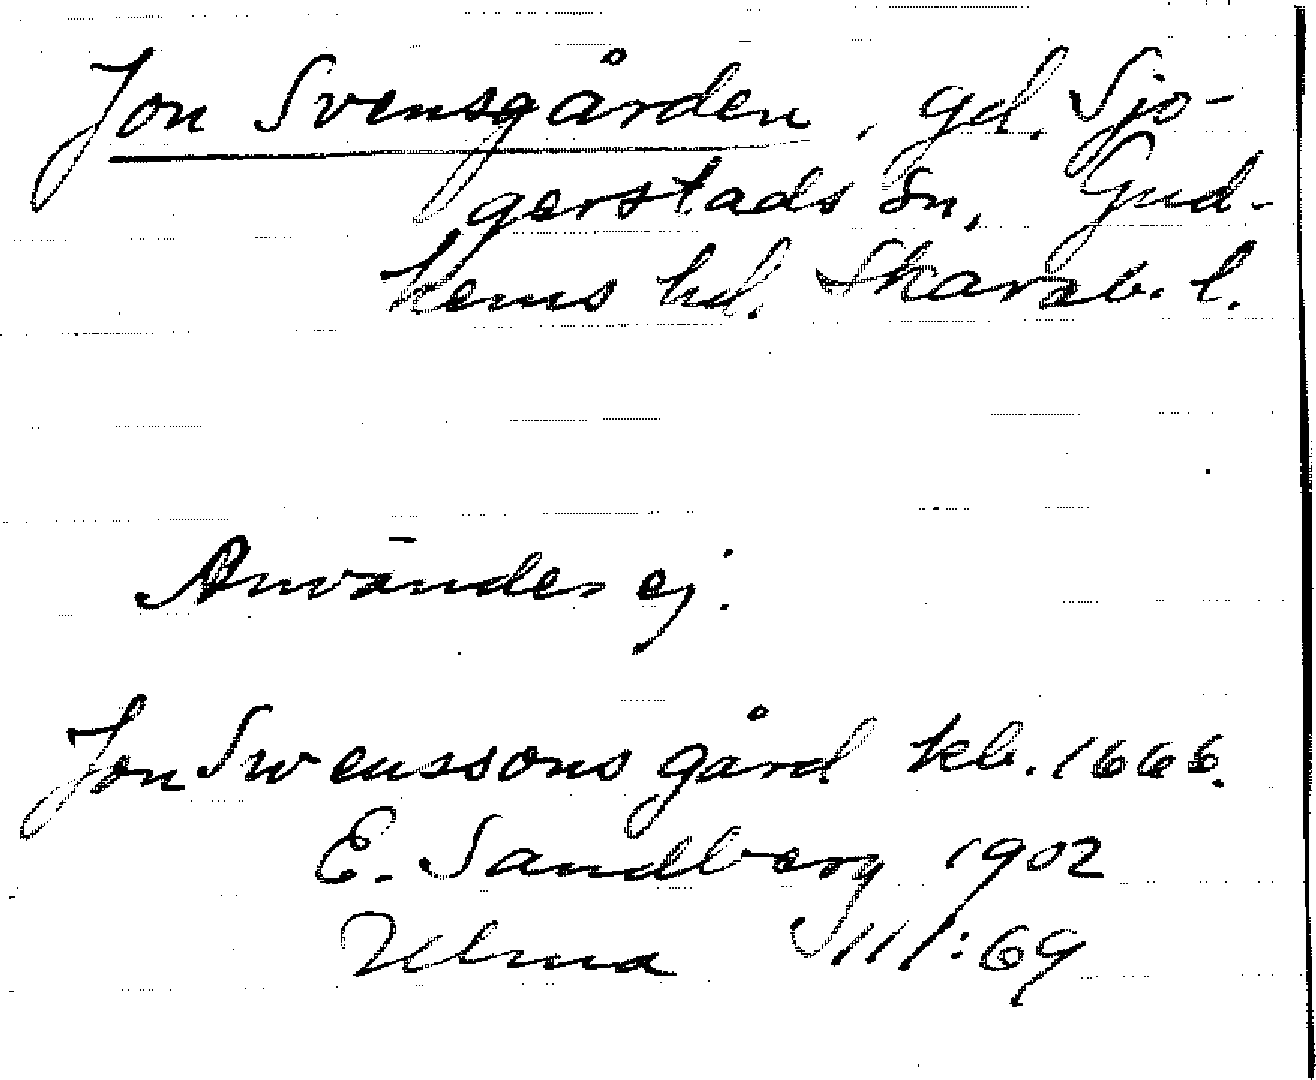 Jon Svensgården, gd. Sjo-
gerstads sn, Gud-
hems hd. Skarab. l.
Användes ej.
Jon Swenssons gård kb. 1666.
E. Sandberg 1902
Ulma 111:69